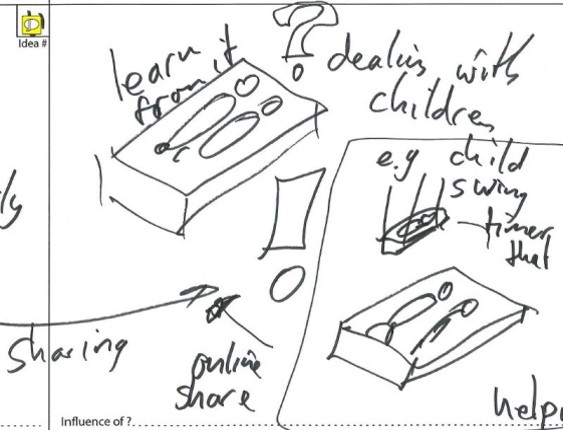 Idea #
?
learn
from it
dealing with
children
e.g child
swing
timer
that
!
sharing
online
share
help
Influence of ?